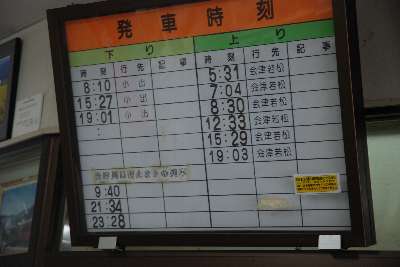 発車時刻
下り 上り
時刻 行先 記事 時刻 行先 記事
8:10 小出 5:31 会津若松
15:27 小出 7:04 会津若松
19:01 小出 8:30 会津若松
: 12:33 会津若松
15:29 会津若松
19:03 会津若松
9:40
21:34
23:28